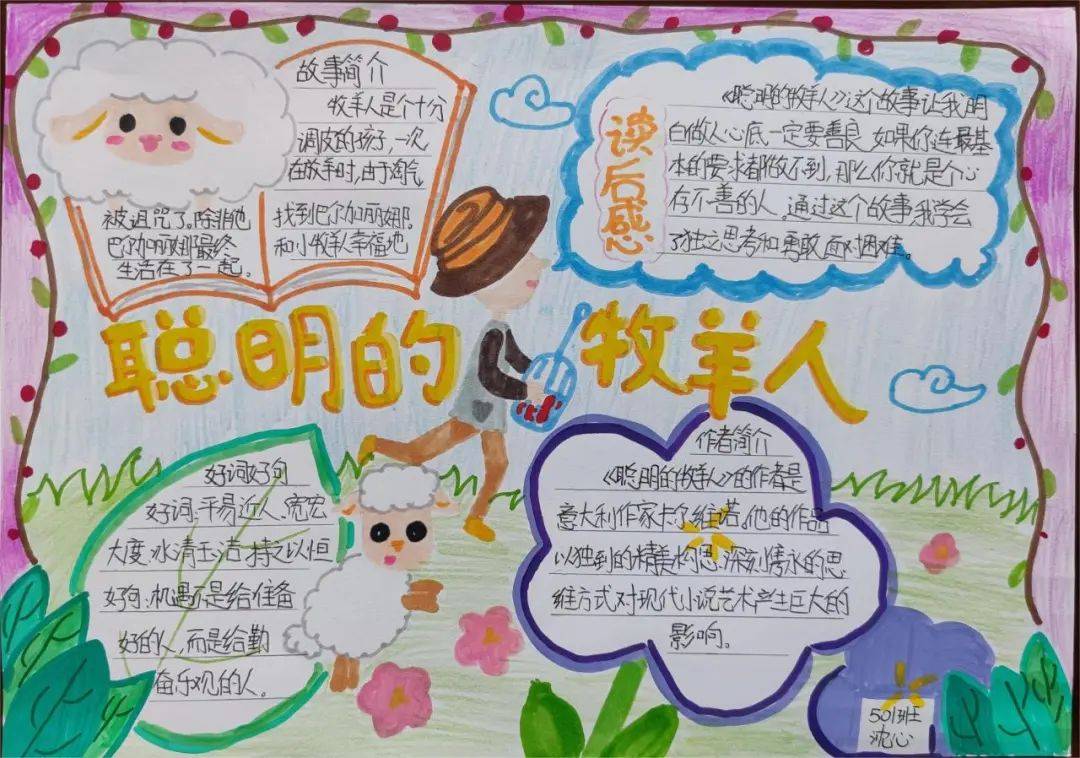 故事简介
牧羊人是个十分
调皮的孩子,一次
在放羊时,由于淘气
被诅咒了。除非他 找到巴尔加丽娜。
巴尔加丽娜最终 和小牧羊人幸福地
生活在了一起。
读后感
《聪明的牧羊人》这个故事让我明
白做人心底一定要善良.如果你连最基
本的要求都做不到,那么你就是个心
存不善的人。通过这个故事,我学会
了独立思考和勇敢面对困难。
聪明的牧羊人
好词好句
好词:平易近人、宽宏
大度、水清玉洁、持之以恒
好句:机遇不是给准备
好的人,而是给勤
奋乐观的人。
作者简介
《聪明的牧羊人》的作者是
意大利作家卡尔维诺。他的作品
以独到的精美构思.深刻隽永的思
维方式对现代小说艺术产生巨大的
影响。
501班
沈心